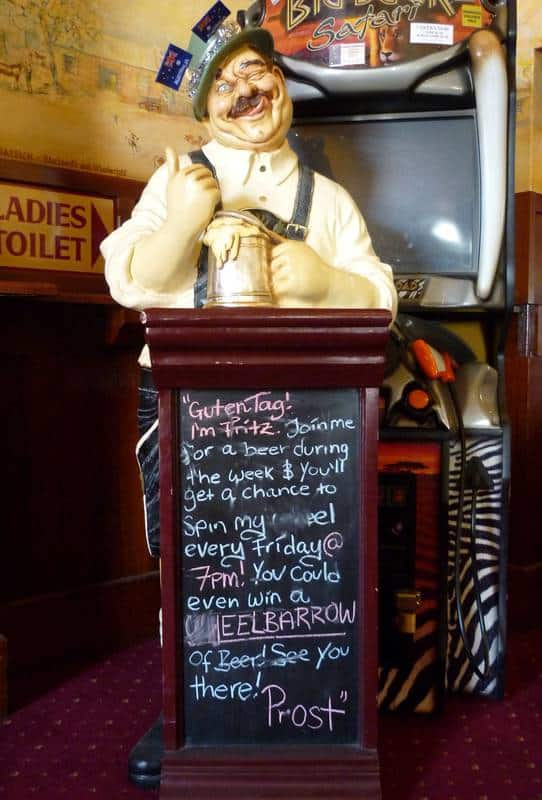 BIG BUCK
Safari
AUSTRALIA
LADIES
TOILET
"Guten Tag!
I'm Fritz. Join me
for a beer during
the week & You'll
get a chance to
Spin my eel
every Friday @
7pm! You Could
even win a
HEELBARROW
Of Beer! See You
there!
Prost"